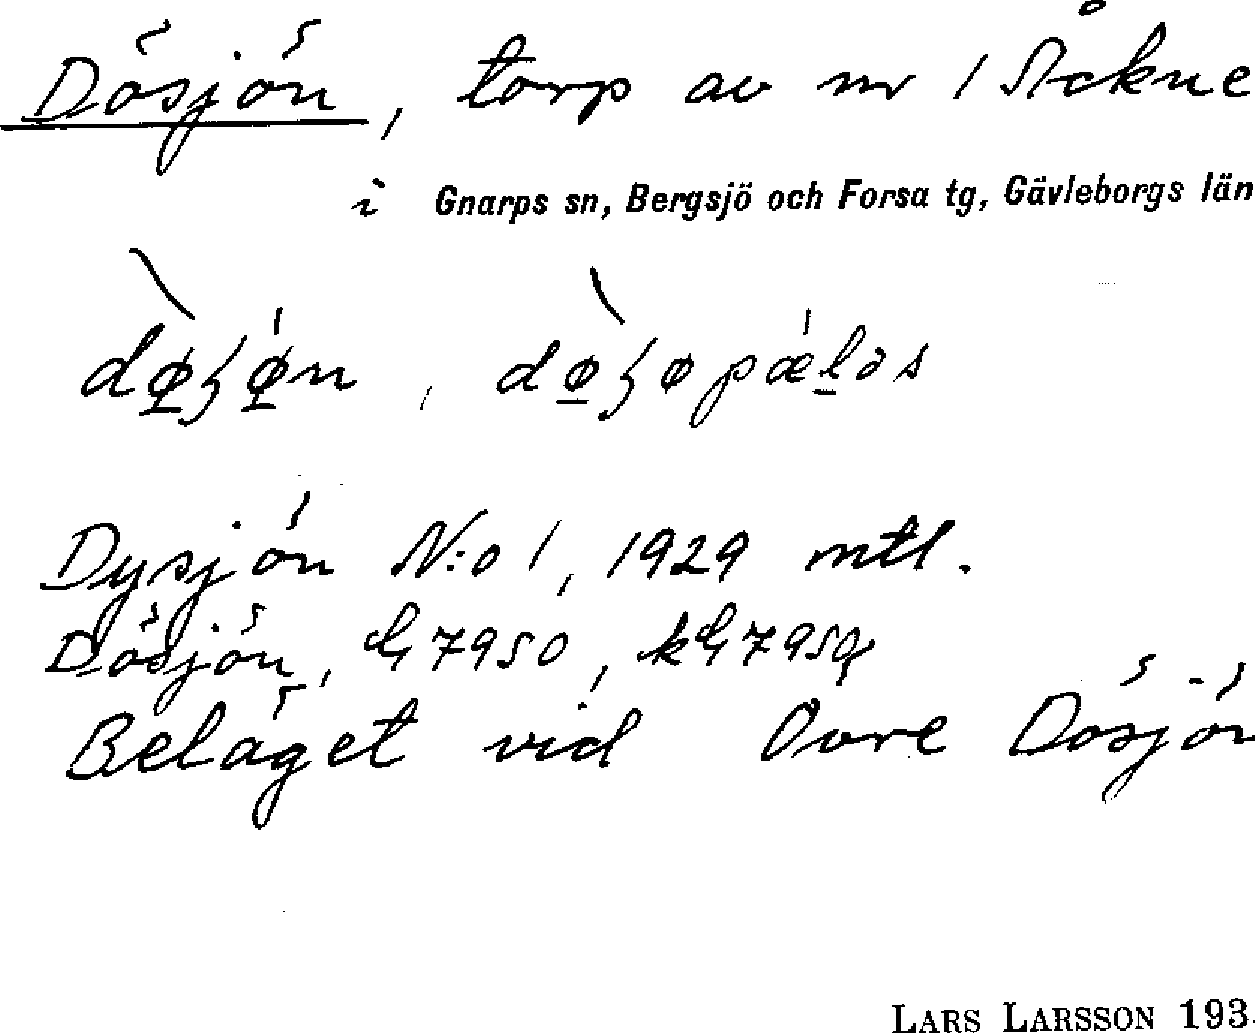 Dösjön, torp av nr 1 Åckne
i Gnarps sn, Bergsjö och Forsa tg, Gävleborgs län
Dysjön N:o 1, 1929 mtl.
Dösjön, 7950, 7950
Beläget vid Övre Dösjön
LARS LARSSON 193